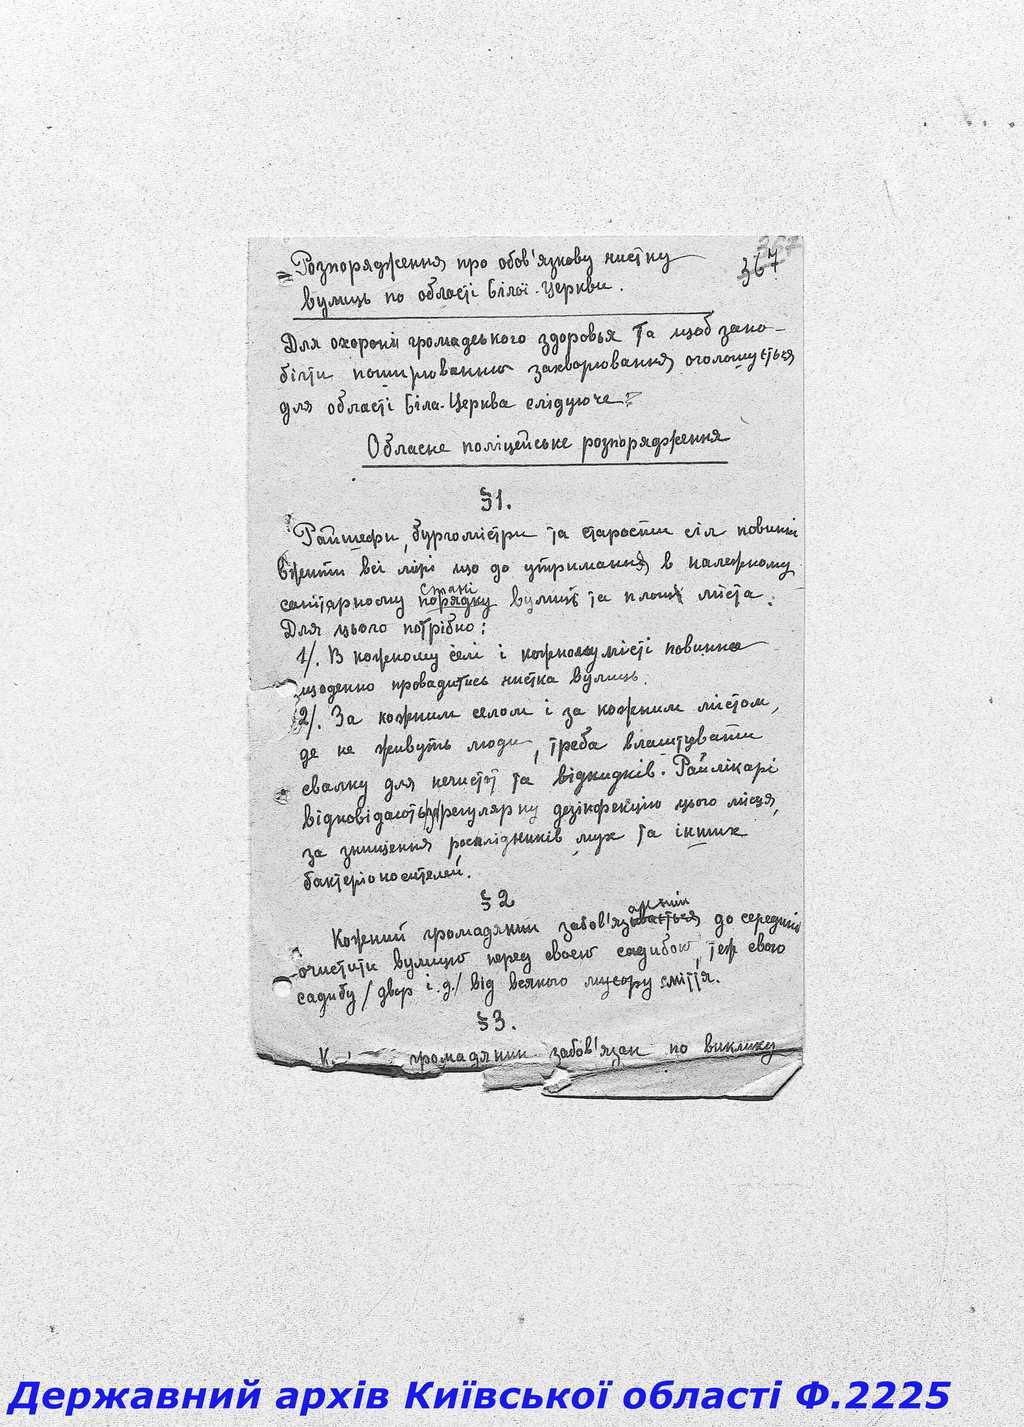 367
367
Розпорядження про обов'язкову чистку
вулиць по області Білої-Церкви.
Для охорони громадського здоровья та щоб запо-
бігти поширюванню захворювання оголошується
для області Біла-Церква слідуюче:
Обласне поліцейське розпорядження
§1.
Райшефи, бургомістри та старости сіл повинні
вжити всі мірі що до утримання в належному
стані
санітарному порядку вулиць та площ міста.
Для цього потрібно:
1/. В кожному селі і кожному місті повинна
щоденно провадитись чистка вулиць.
2/. За кожним селом і за кожним містом,
де не живуть люди, треба влаштувати
свалку для нечистот та відкидків. Райлікарі
відповідають за регулярну дезінфекцію цього місця,
за знищення росплідників мух та інших
бактеріоносителей.
§2
Кожний громадянин забов'язується до середині
очистити вулицю перед своєю садибою, теж свого
садибу /двор і.д./ від всякого мусору сміття.
§3.
К громадянин забов'язан по виклику
Державний архів Київської області Ф.2225